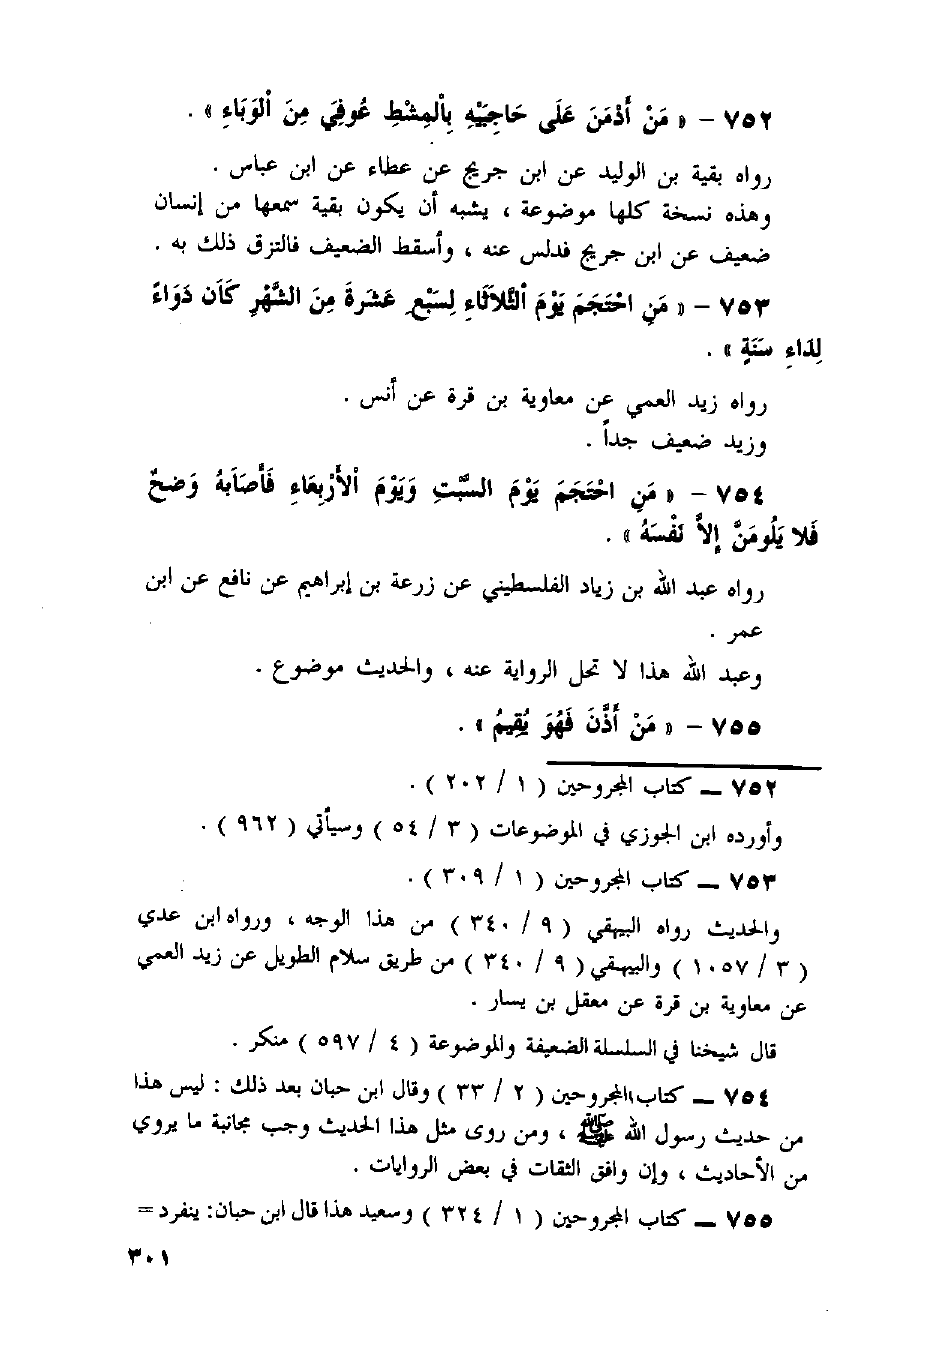 ٧٥٢ – « مَنْ أَدْمَنَ عَلَى حَاجِبَيْهِ بِالْمِشْطِ عُوفِيَ مِنَ الْوَبَاءِ » .
رواه بقية بن الوليد عن ابن جريج عن عطاء عن ابن عباس .
وهذه نسخة كلها موضوعة ، يشبه أن يكون بقية سمعها من إنسان
ضعيف عن ابن جريج فدلس عنه ، وأسقط الضعيف فالتزق ذلك به .
٧٥٣ – « مَنِ احْتَجَمَ يَوْمَ الثَّلاَثَاءِ لِسَبْعِ عَشَرَةَ مِنَ الشَّهْرِ كَانَ دَوَاءً
لِدَاءِ سَنَةٍ » .
رواه زيد العمي عن معاوية بن قرة عن أنس .
وزيد ضعيف جداً .
٧٥٤ – « مَنِ احْتَجَمَ يَوْمَ السَّبْتِ وَيَوْمَ الأَرْبِعَاءِ فَأَصَابَهُ وَضَحٌ
فَلا يَلُومَنَّ إِلاَّ نَفْسَهُ » .
رواه عبد الله بن زياد الفلسطيني عن زرعة بن إبراهيم عن نافع عن ابن
عمر .
وعبد الله هذا لا تحل الرواية عنه ، والحديث موضوع .
٧٥٥ – « مَنْ أَذَّنَ فَهُوَ يُقِيمُ » .
٧٥٢ ــ كتاب المجروحين ( ١ / ٢٠٢ ) .
وأورده ابن الجوزي في الموضوعات ( ٣ / ٥٤ ) وسيأتي ( ٩٦٢ ) .
٧٥٣ ــ كتاب المجروحين ( ١ / ٣٠٩ ) .
والحديث رواه البيهقي ( ٩ / ٣٤٠ ) من هذا الوجه ، ورواه ابن عدي
( ٣ / ١٠٥٧ ) والبيهقي ( ٩ / ٣٤٠ ) من طريق سلام الطويل عن زيد العمي
عن معاوية بن قرة عن معقل بن يسار .
قال شيخنا في السلسلة الضعيفة والموضوعة ( ٤ / ٥٩٧ ) منكر .
٧٥٤ ــ كتاب المجروحين ( ٢ / ٣٣ ) وقال ابن حبان بعد ذلك : ليس هذا
من حديث رسول الله ﷺ ، ومن روى مثل هذا الحديث وجب مجانبة ما يروي
من الأحاديث ، وإن وافق الثقات في بعض الروايات .
٧٥٥ ــ كتاب المجروحين ( ١ / ٣٢٤ ) وسعيد هذا قال ابن حبان: ينفرد =
٣٠١